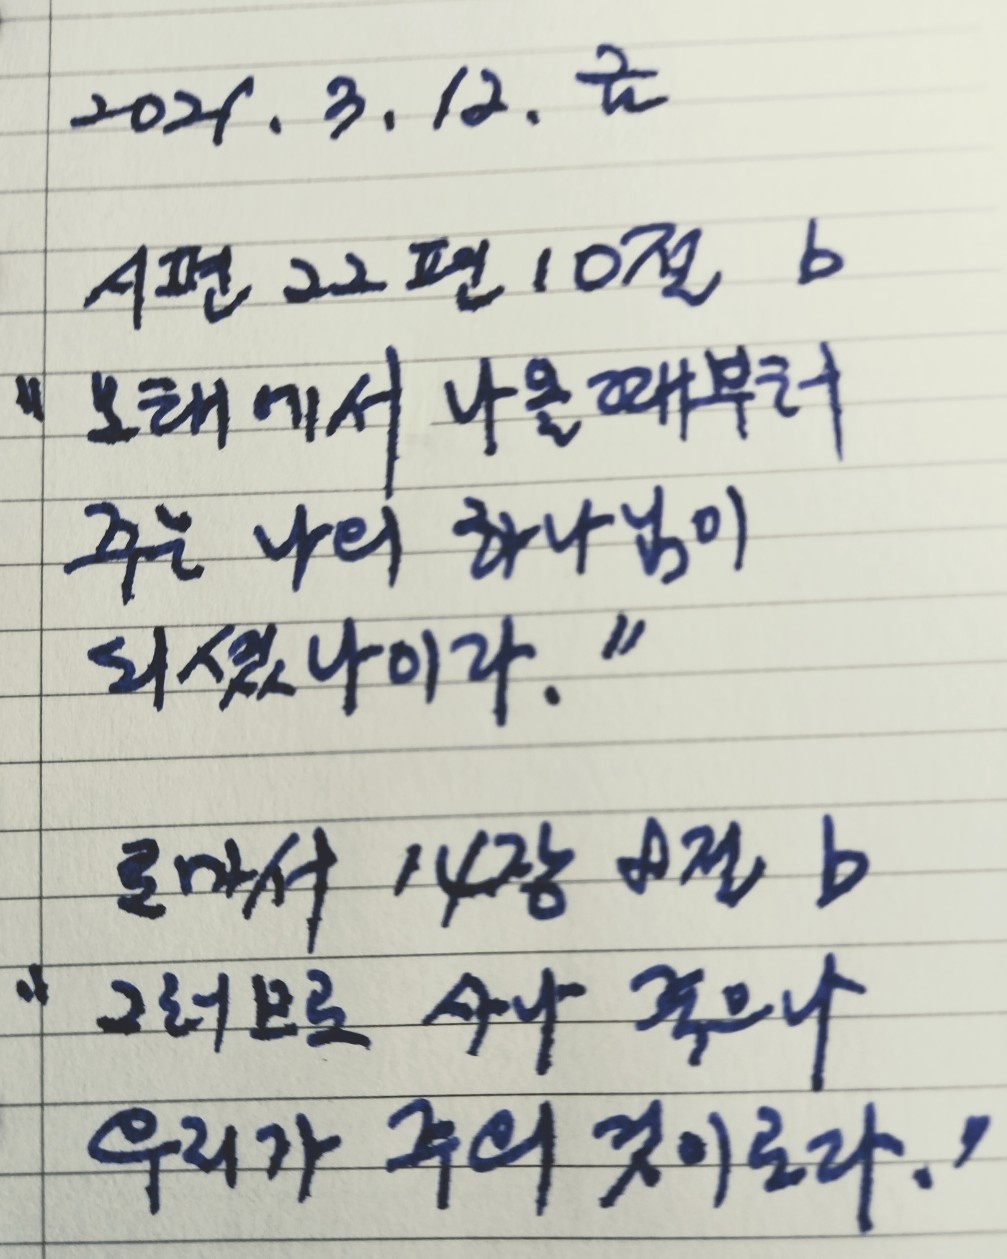 2021. 3. 12. 금
시편 22편 10절 b
" 모태에서 나올때부터
주는 나의 하나님이
되셨나이다. "
로마서 14장 8절 b
" 그러므로 사나 죽으나
우리가 주의 것이로라. "